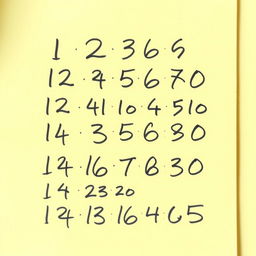 1 · 2 · 3 6 · 5
12 · 4 · 5 · 6 · 70
12 · 41 10 · 4 · 510
14 · 3 · 5 6 · 80
14 · 16 · 7 6 · 30
14 · 23 20
14 · 13 · 16 4 · 65